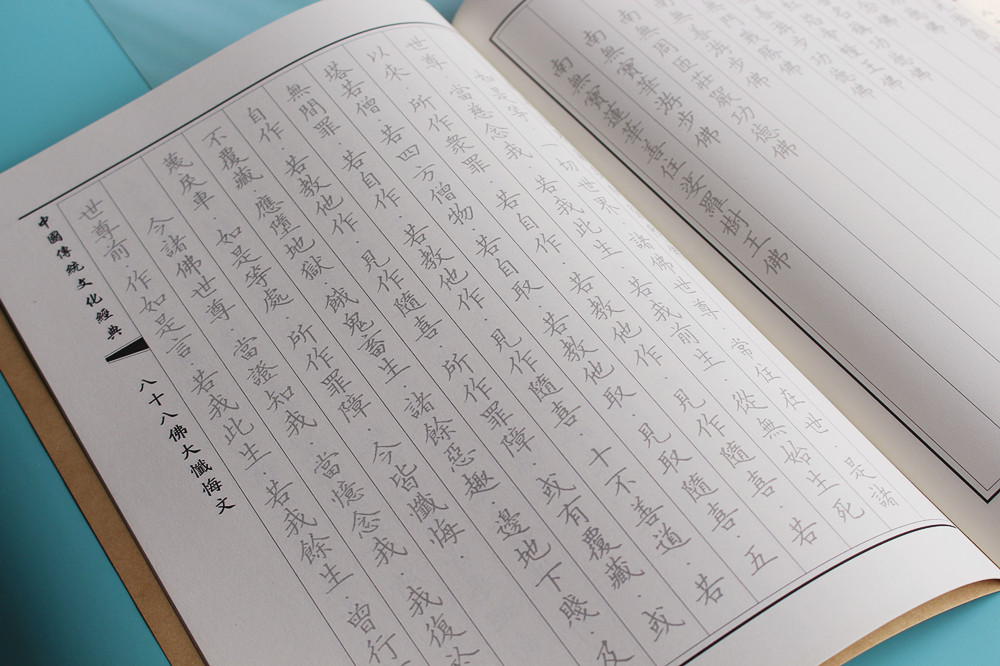 南無周匝莊嚴功德佛
南無寶華游步佛
南無寶蓮華善住娑羅樹王佛
如是等·一切世界·諸佛世尊·常住在世·是諸
世尊·當慈念我·若我此生·若我前生·從無始生死
以來·所作衆罪·若自作·若教他作·見作隨喜·若
塔若僧·若四方僧物·若自取·若教他取·見取隨喜·五
無間罪·若自作·若教他作·見作隨喜·十不善道·若
自作·若教他作·見作隨喜·所作罪障·或有覆藏·或
不覆藏·應墮地獄·餓鬼畜生·諸餘惡趣·邊地下賤·及
蔑戾車·如是等處·所作罪障·今皆懺悔
今諸佛世尊·當證知我·當憶念我·我復於
世尊前·作如是言·若我此生·若我餘生·曾行
中國傳統文化經典
八十八佛大懺悔文